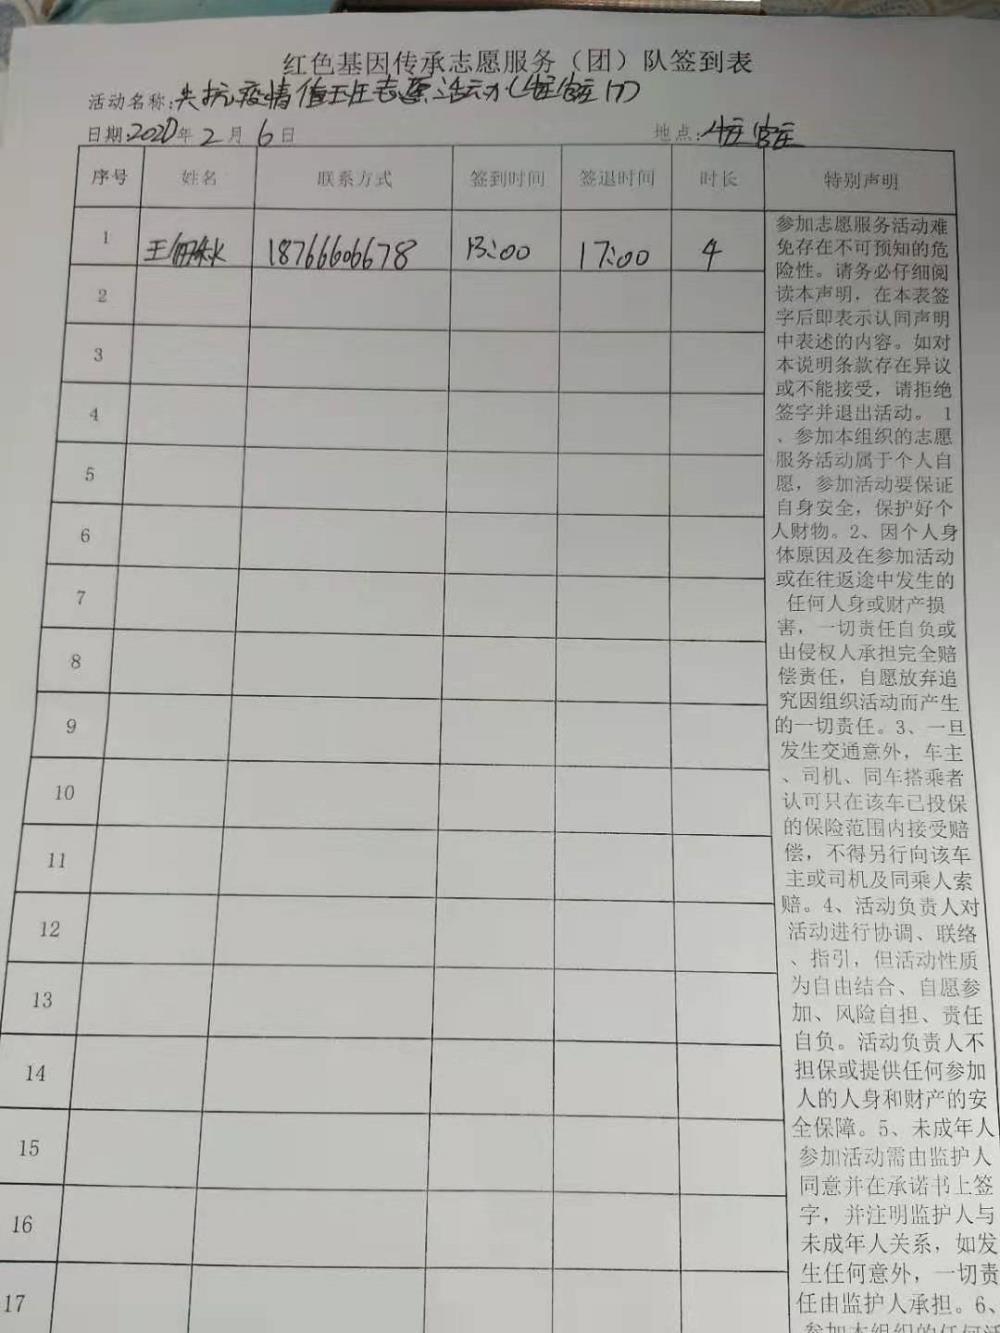 红色基因传承志愿服务（团）队签到表
活动名称:共抗疫情值班志愿活动
日期:2020年2月6日 地点:
序号 姓名 联系方式 签到时间 签退时间 时长 特别声明
1 王 18766606678 13:00 17:00 4
2
3
4
5
6
7
8
9
10
11
12
13
14
15
16
17
参加志愿服务活动难
免存在不可预知的危
险性。请务必仔细阅
读本声明，在本表签
字后即表示认同声明
中表述的内容。如对
本说明条款存在异议
或不能接受，请拒绝
签字并退出活动。 1
、参加本组织的志愿
服务活动属于个人自
愿，参加活动要保证
自身安全，保护好个
人财物。2、因个人身
体原因及在参加活动
或在往返途中发生的
任何人身或财产损
害，一切责任自负或
由侵权人承担完全赔
偿责任，自愿放弃追
究因组织活动而产生
的一切责任。3、一旦
发生交通意外，车主
、司机、同车搭乘者
认可只在该车已投保
的保险范围内接受赔
偿，不得另行向该车
主或司机及同乘人索
赔。4、活动负责人对
活动进行协调、联络
、指引，但活动性质
为自由结合、自愿参
加、风险自担、责任
自负。活动负责人不
担保或提供任何参加
人的人身和财产的安
全保障。5、未成年人
参加活动需由监护人
同意并在承诺书上签
字，并注明监护人与
未成年人关系，如发
生任何意外，一切责
任由监护人承担。6、
参加本组织的任何活